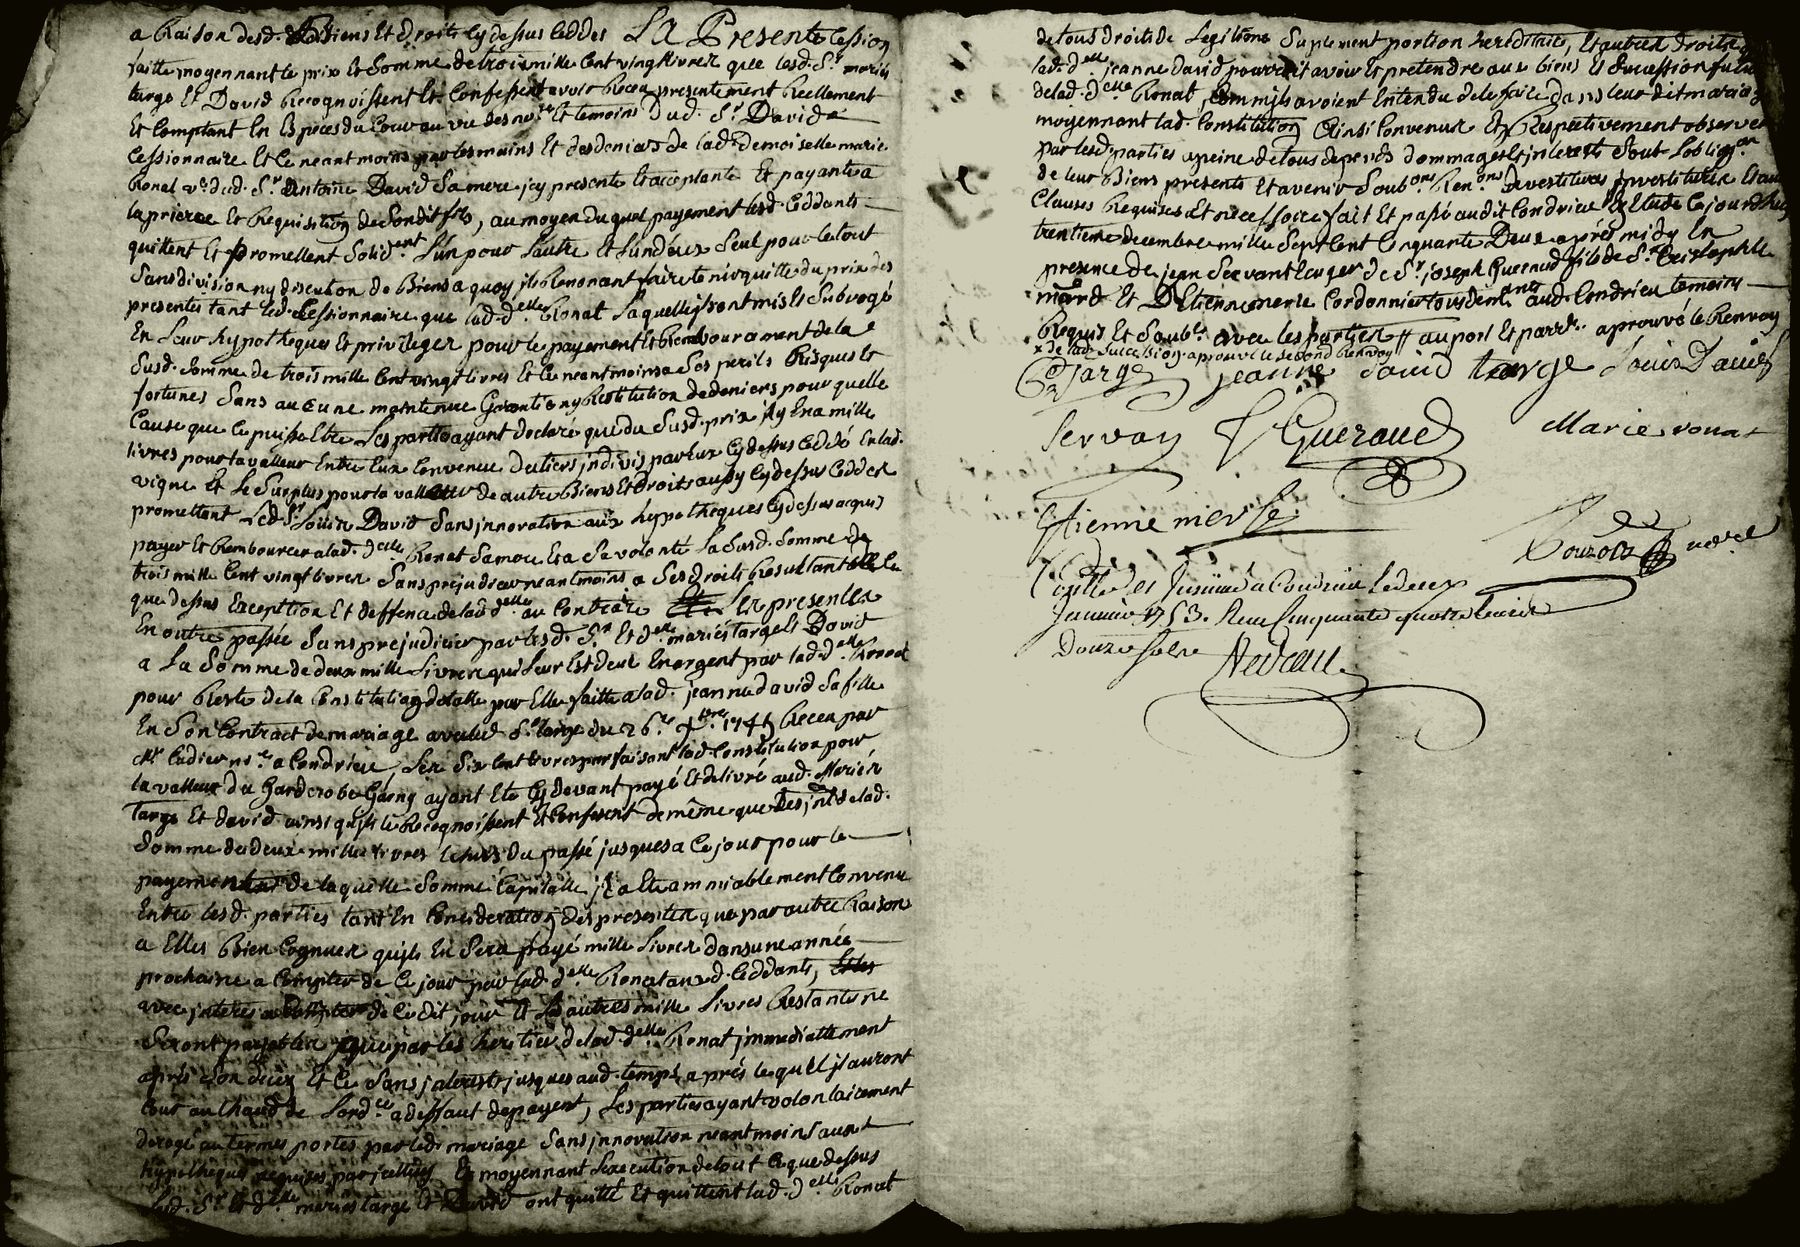 a Raison desd. Biens Et droits Cy dessus Ceddes LA Presente Cession
faitte moyennant le prix Et Somme de trois mille Cent vingt livres que lesd. Sr. mariés
targe Et David Recognoissent Et Confessent avoir Receu presentement Reellement
Et Comptant En Especes du Cour au vu des nore. Et temoins dud. Sr. David
Cessionnaire Et Ce neantmoins par les mains Et des deniers de lad. demoiselle marie
Ronat ve. dud. Sr. Antoine David Sa mere jcy presente Et acceptante Et payante a
la priere Et Requisition de Sondit fils, au moyen du quel payement lesd. Ceddants
quittent Et promettent Solident. L'un pour L'autre Et L'un deux Seul pour le tout
Sans division ny discution de Biens a quoy ils Renonant faire tenir quitte du prix des
presentes tant led. Cessionnaire que lad. delle. Ronat Laquelle jls ont mis Et Subrogé
En Leur hypotheques Et privileges pour le payement Et Remboursement de la
Susd. Somme de trois mille Cent vingt livres Et Ce neantmoins a Ses perils Risques Et
fortunes Sans aucune maintenue Garantie ny Restitution de deniers pour quelle
Cause que Ce puisse Etre Les parties ayant declaré que du Susd. prix jl y En a mille
livres pour la valleur Entre Eux Convenue du tiers jndivis par Eux Cy dessus Ceddé En lad.
vigne Et Le Surplus pour la valleur de autre Biens Et Droits aussy Cy dessus Ceddes
promettant Led. Sr. Louis David Sans jnnovation aux hypotheques Cy dessus acquis
payer Et Rembourcer a lad. delle. Ronat Sa mere Et a Sa volonté La Susd. Somme de
trois mille Cent vingt livres Sans prejudice neantmoins a Ses droits Resultant
que dessus Exception Et deffence de lad. delle. au Contraire Les presentes
En outre passée Sans prejudicier par lesd. Sr. Et delle. mariés targe Et David
a La Somme de deux mille Livres qui Leur Est deue En argent par lad. delle. Ronat
pour Reste de la Constitution dotalle par Elle faitte a lad. jeanne David Sa fille
En Son Contract de mariage avec led. Sr. targe du 26e. Receu par
Me. Cadier nore. a Condrieu, Les Six Cent livres parfaisant lad. Constitution pour
la valleur du Garderobe Garny ayant Eté Cy devant payé Et delivré aud. Mariés
Targe Et David ainsi qu'jls le Recognoissent Et Confessent de même que Les jnts. de lad.
Somme de deux mille livres Echus du passé jusques a Ce jour pour le
payement de laquelle Somme Capitalle jl a Eté amniablement Convenu
Entre lesd. parties tant En Consideration des presentes que par autre Raison
a Elles Bien Cognues qu'jls En Sera payé mille Livres dans une année
prochaine a Compter de Ce jour par lad. delle. Ronat aux d. Ceddants,
avec jnterets a Compter de Ce dit jour Et Les autres mille Livres Restants ne
Seront payables que par les heritiers de lad. delle. Ronat jmmediattement
aprés Son deces Et Ce Sans jnterests jusques aud. temps, aprés lequel jls auront
Cour au Chaud de Lordce. a deffaut de payent, Les parties ayant volontairement
derogé au termes portes par led. mariage Sans jnnovation neantmoins aux
hypotheques acquises par jcelluy Et moyennant L'execution de tout Ce que dessus
Lesd. Sr. Et delle. mariés targe Et David ont quitté Et quittent lad. delle. Ronat
de tous droits de Legitime Suplement portion hereditaire, Et autres droits
lad. delle. jeanne David pourroit avoir Et pretendre aux biens Et Succession future
de lad. delle. Ronat, Comm'jls avoient Entendu de le faire dans leur dit mariage
moyennant lad. Constitution Ainsi Convenus Et Respectivement observer
par lesd. parties a peine de tous depends dommages Et jnterests Sous Lobligon.
de leur Biens presents Et avenir Soubons. Renons. Devestitures jnvestitures Et autres
Clauses Requises Et necessoires fait Et passé audit Condrieu Estude Ce jourdhuy
trentieme decembre mille Sept Cent Cinquante Deux aprés midy En
presence de jean Servant Berger de Sr. joseph Gueraud fils de Sr. Cristophle
mard. Et D'Etienne merle Cordonnier tous demeurants aud. Condrieu temoins
Requis Et Soubses. avec les parties // au port Et parre. aprouvé le Renvoy
x de lad. Succession aprouvé le second Renvoy
Targe jeanne david targe Louis David
Servan Gueraud Marie ronat
Etienne merle
Coullé et Jnsinué a Condrieu le deux
Janvier 1753. Receu Cinquante quatre livres
Douze sols